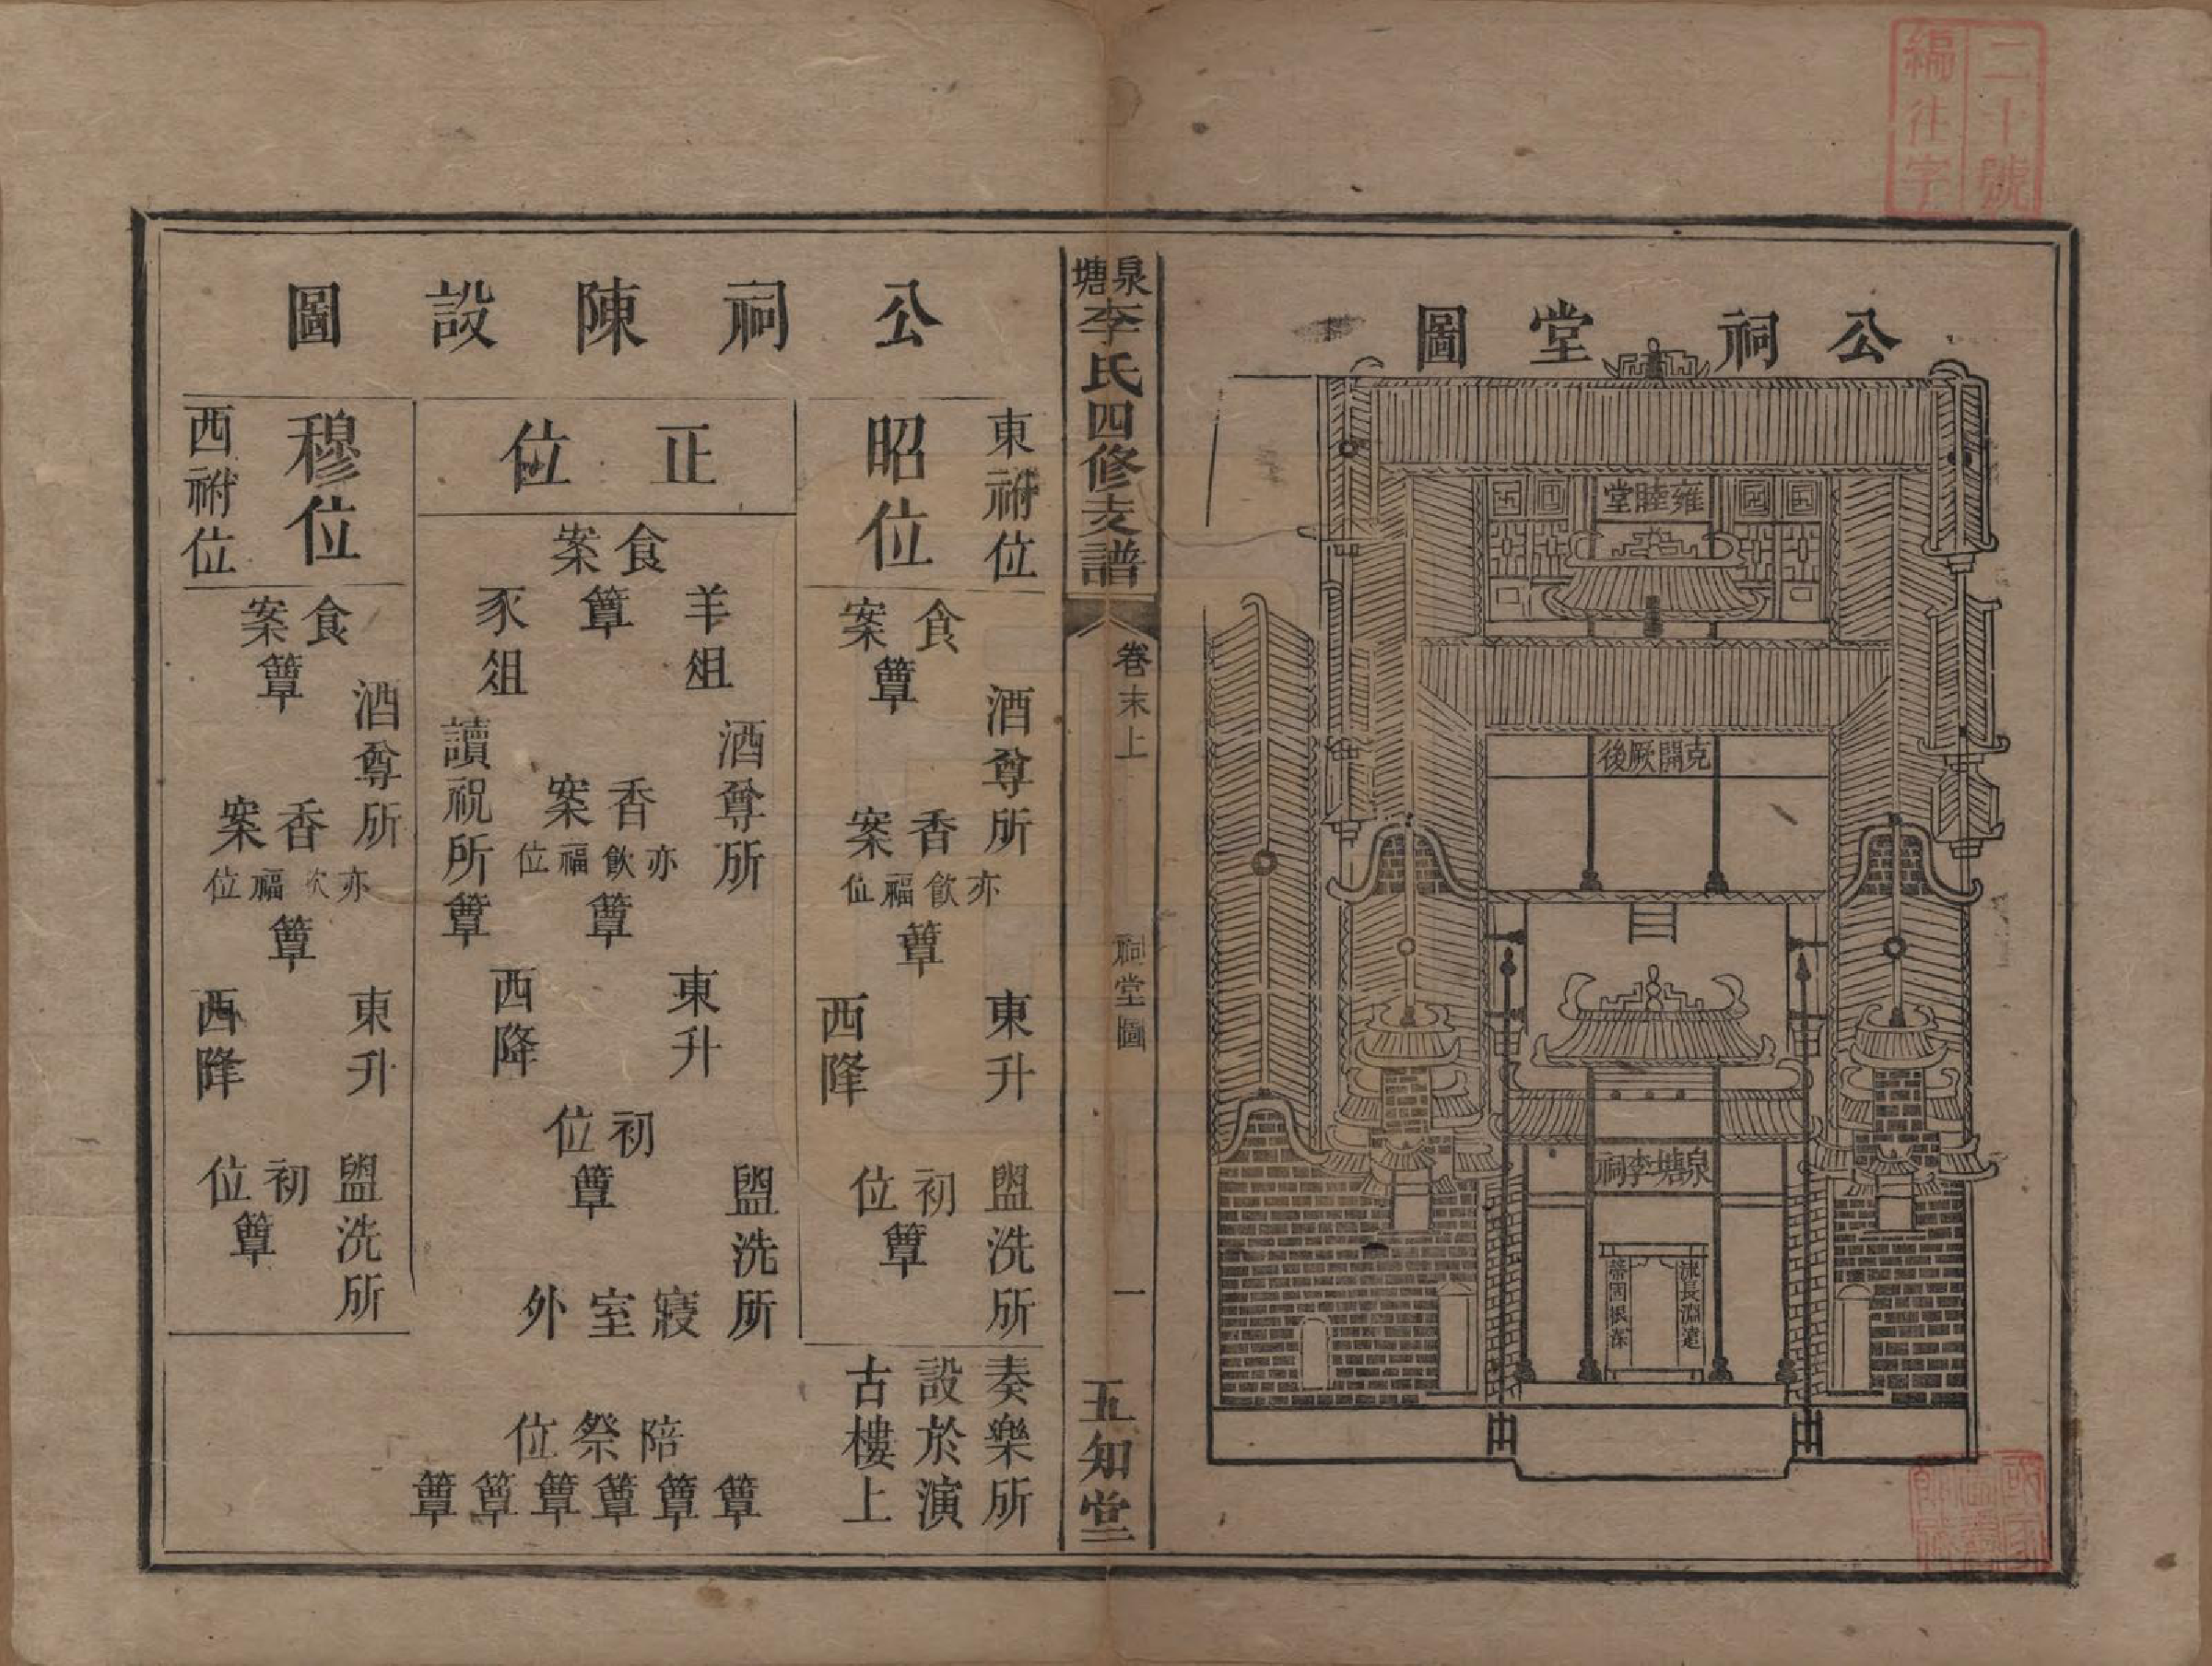 二十號
編往字
公祠堂圖
雍睦堂
克開厥後
泉塘李祠
流長淵遠
蒂固根深
泉塘李氏四修支譜
卷末上
祠堂圖
一
五知堂
公祠陳設圖
東祔位
昭位
食案
簟
酒尊所
香案
亦飲福位
簟
東升
西降
盥洗所
初位
簟
奏樂所
設於演
古樓上
正位
食案
羊俎
簟
豕俎
酒尊所
香案
亦飲福位
簟
讀祝所
簟
東升
西降
初位
簟
盥洗所
寢室外
陪祭位
簟簟簟簟簟簟
穆位
西祔位
食案
簟
酒尊所
香案
亦飲福位
簟
東升
西降
盥洗所
初位
簟